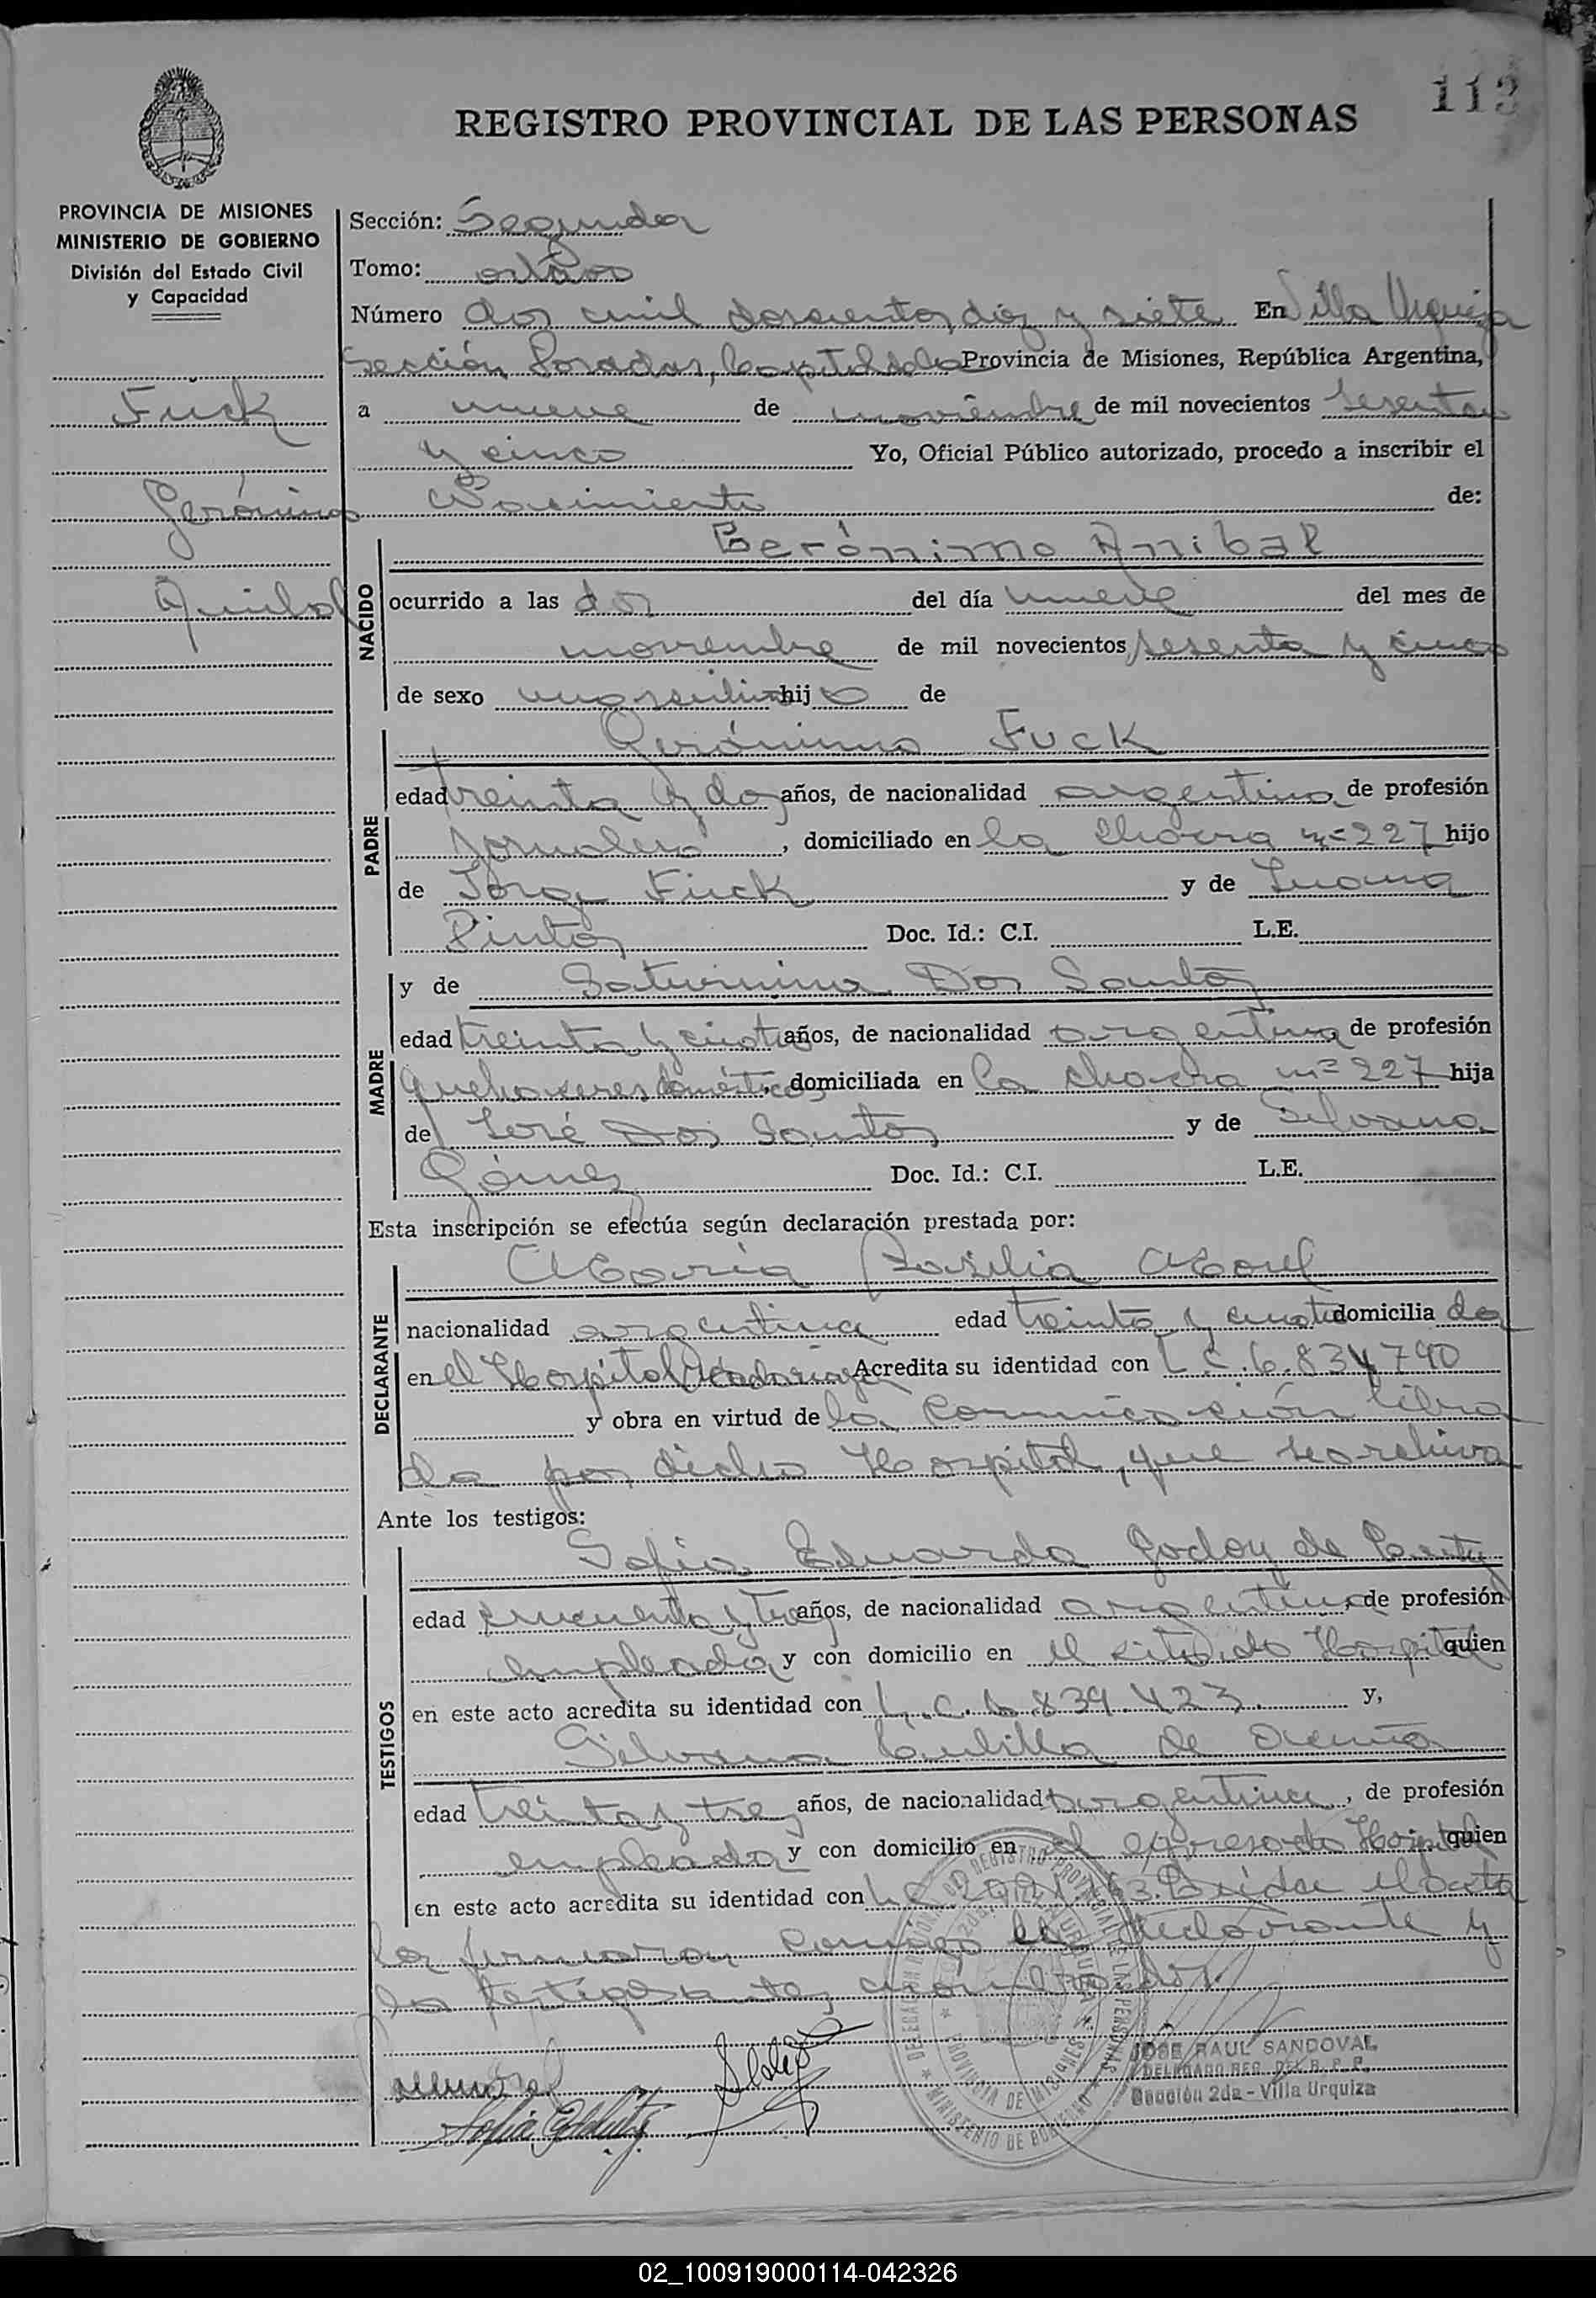 113
REGISTRO PROVINCIAL DE LAS PERSONAS
PROVINCIA DE MISIONES
MINISTERIO DE GOBIERNO
División del Estado Civil
y Capacidad
Fuck
Gerónimo
Anibal
Sección: Segunda
Tomo:
Número dos mil doscientos diez y siete En Villa Urquiza
Sección Posadas, Capital de la Provincia de Misiones, República Argentina,
a nueve de noviembre de mil novecientos sesenta
y cinco Yo, Oficial Público autorizado, procedo a inscribir el
Nacimiento de:
NACIDO
Gerónimo Anibal
ocurrido a las dos del día nueve del mes de
noviembre de mil novecientos sesenta y cinco
de sexo masculino hijo de
PADRE
Gerónimo Fuck
edad treinta y dos años, de nacionalidad argentina de profesión
jornalero, domiciliado en la chacra nº 227 hijo
de Jorge Fuck y de Juana
Pinto Doc. Id.: C.I. L.E.
MADRE
y de Saturnina Dos Santos
edad treinta y cuatro años, de nacionalidad argentina de profesión
quehaceres domésticos, domiciliada en la chacra nº 227 hija
de José Dos Santos y de Silvana
Gómez Doc. Id.: C.I. L.E.
Esta inscripción se efectúa según declaración prestada por:
DECLARANTE
María Basilia
nacionalidad argentina edad treinta y cuatro domicilia da
en el Hospital Madariaga Acredita su identidad con L.C. 6.834790
y obra en virtud de la comunicación libra
da por dicho Hospital, que se archiva
Ante los testigos:
TESTIGOS
Sofia Eduarda Godoy de
edad cincuenta y tres años, de nacionalidad argentina, de profesión
empleada y con domicilio en el citado Hospital quien
en este acto acredita su identidad con L.C. 6.839.423 y,
Silvana de
edad treinta y tres años, de nacionalidad argentina, de profesión
empleada y con domicilio en el expresado Hospital quien
en este acto acredita su identidad con L.C. Leída el acta
la firmaron conmigo la declarante y
los testigos antes nombrados.
DELEGACION REGIONAL DEL REGISTRO PROVINCIAL DE LAS PERSONAS
MINISTERIO DE GOBIERNO
PROVINCIA DE MISIONES
JOSE RAUL SANDOVAL
DELEGADO REG. DEL R. P. P.
Sección 2da - Villa Urquiza
02_100919000114-042326